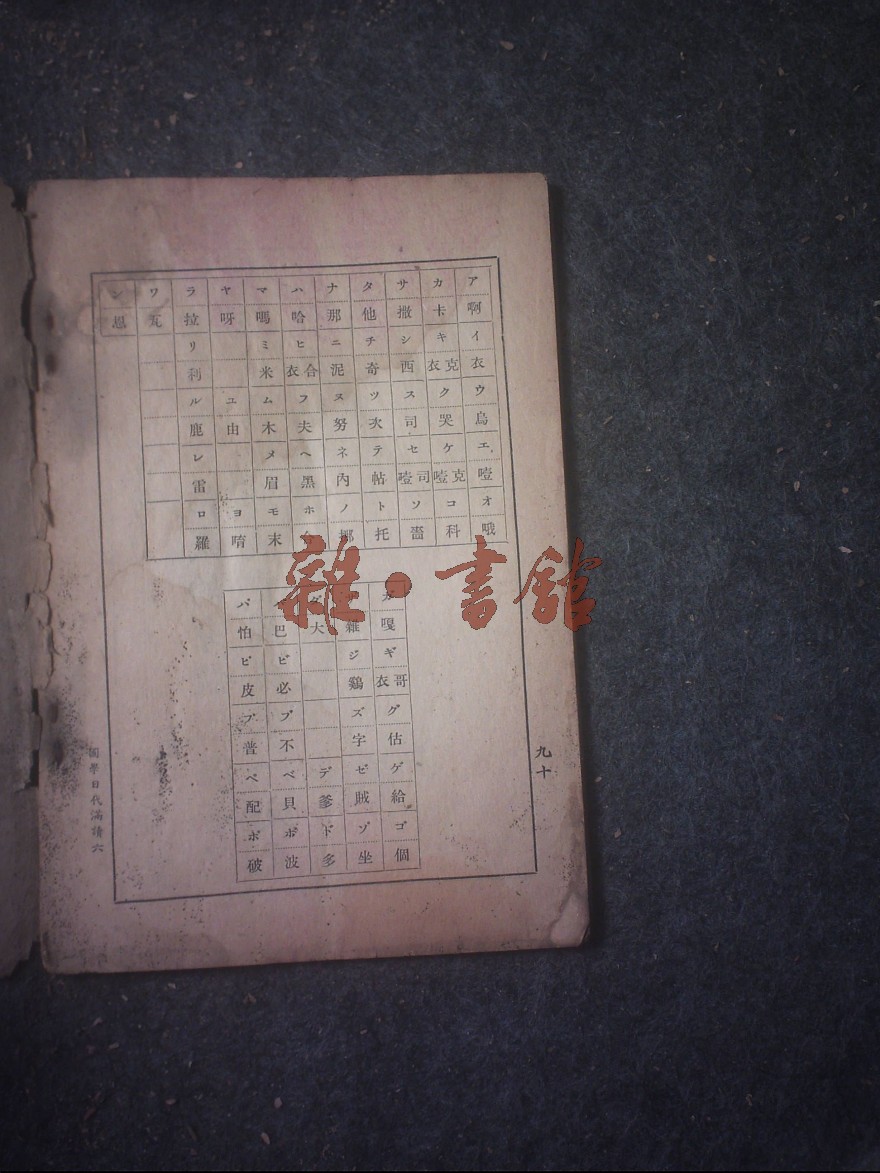 ア カ サ タ ナ ハ マ ヤ ラ ワ ン
啊 卡 撒 他 那 哈 嗎 呀 拉 瓦 恩
イ キ シ チ ニ ヒ ミ リ
衣 克衣 西 奇 泥 合衣 米 利
ウ ク ス ツ ヌ フ ム ユ ル
烏 哭 司 次 努 夫 木 由 鹿
エ ケ セ テ ネ ヘ メ レ
噎 克噎 司噎 帖 內 黑 眉 雷
オ コ ソ ト ノ ホ モ ヨ ロ
哦 科 嗇 托 挪 末 唷 羅
ガ ダ パ
嘎 雜 大 巴 怕
ギ ジ ビ ピ
哥衣 鷄 必 皮
グ ズ ブ プ
估 字 不 普
ゲ ゼ デ ベ ペ
給 賊 爹 貝 配
ゴ ゾ ド ボ ポ
個 坐 多 波 破
九十
國學日代滿清六
雜·書舘